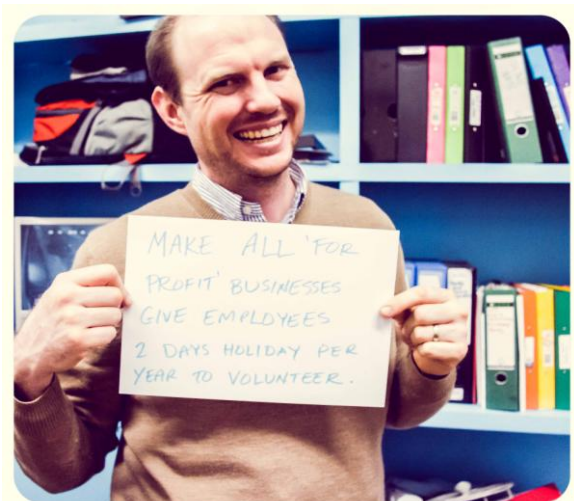 MAKE ALL 'FOR
PROFIT' BUSINESSES
GIVE EMPLOYEES
2 DAYS HOLIDAY PER
YEAR TO VOLUNTEER.